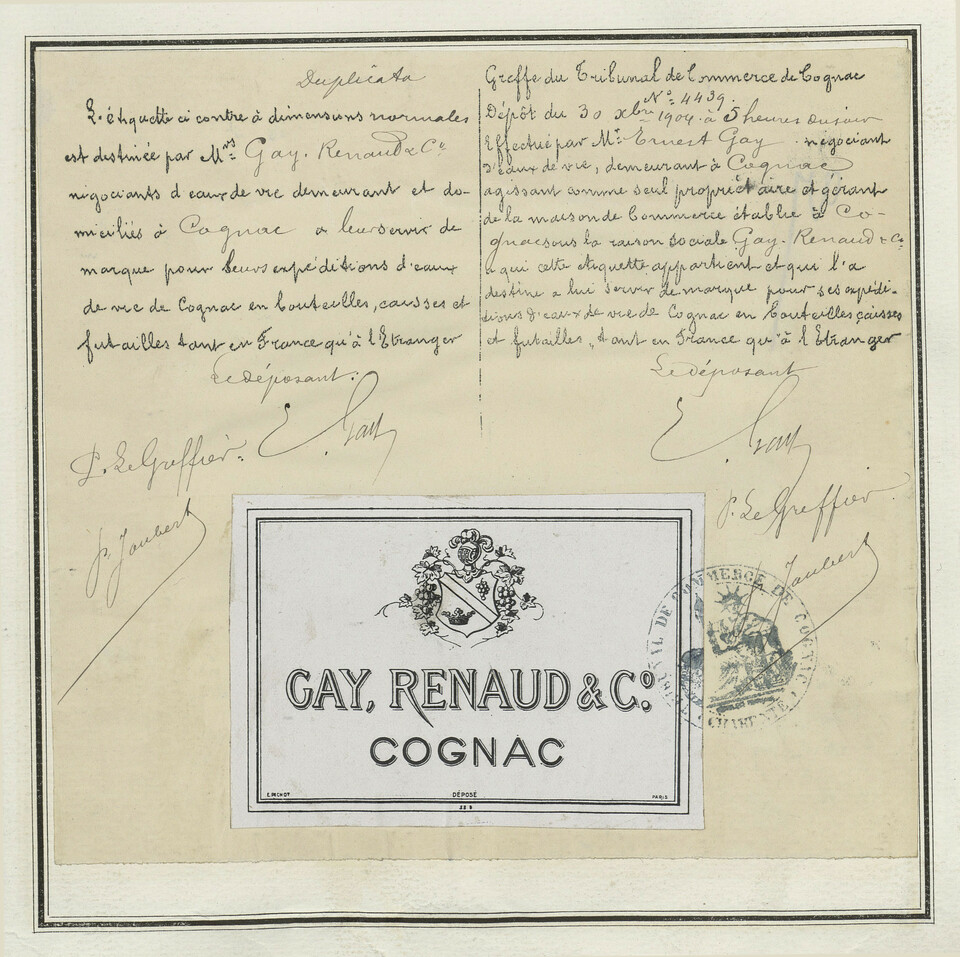 Duplicata
L'étiquette ci contre à dimensions normales
est destinée par M.rs Gay. Renaud & Co
négociants d'eaux de vie demeurant et do-
miciliés à Cognac a leur servir de
marque pour leurs expéditions d'eaux
de vie de Cognac en bouteilles, caisses et
futailles tant en France qu'à l'Etranger
Le déposant:
E. Gay
P. Le Greffier
P. Joubert
Greffe du Tribunal de Commerce de Cognac
No. 4439.
Dépôt du 30 Xbre 1904 à 5 heures du soir
Effectué par Mr. Ernest Gay négociant
d'eaux de vie, demeurant à Cognac
agissant comme seul propriétaire et gérant
de la maison de Commerce établie à Co-
gnac sous la raison sociale Gay. Renaud & Co
a qui cette étiquette appartient et qui l'a
destine a lui servir de marque pour ses expédi-
tions d'eaux de vie de Cognac en bouteilles caisses
et futailles, tant en France qu'à l'Etranger
Le déposant
E. Gay
P. Le Greffier.
Joubert
GAY, RENAUD & Co.
COGNAC
E. PICHOT DÉPOSÉ PARIS
TRIBUNAL DE COMMERCE DE COGNAC
CHARENTE